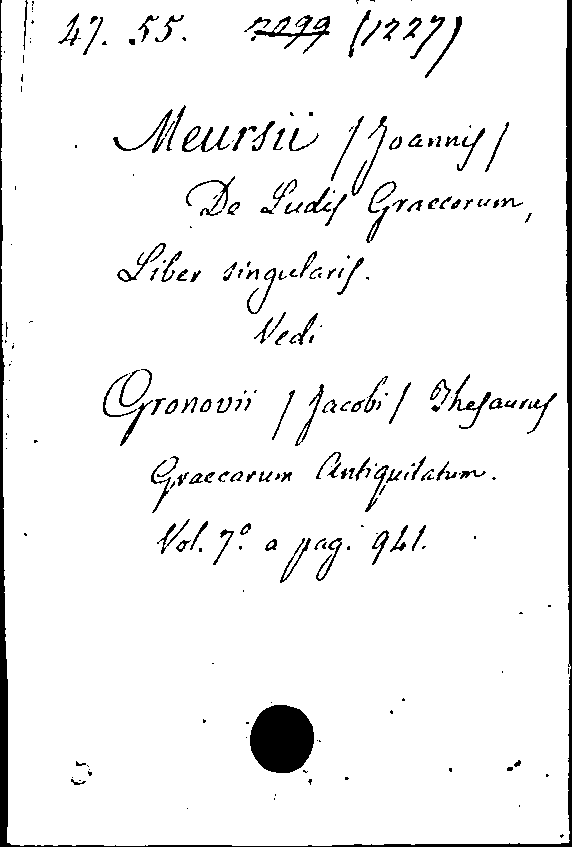 47. 55. 2099 (1227)
Meursii /Joannis/
De Ludis Graecorum,
Liber singularis.
Vedi
Gronovii /Jacobi/ Thesaurus
Graecarum Antiquitatum.
Vol. 7º. a pag. 941.